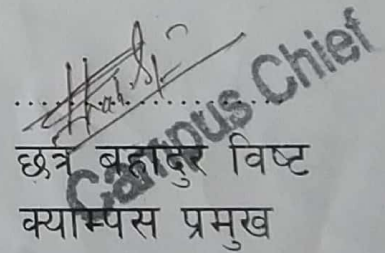 Campus Chief
छत्र बहादुर विष्ट
क्याम्पस प्रमुख